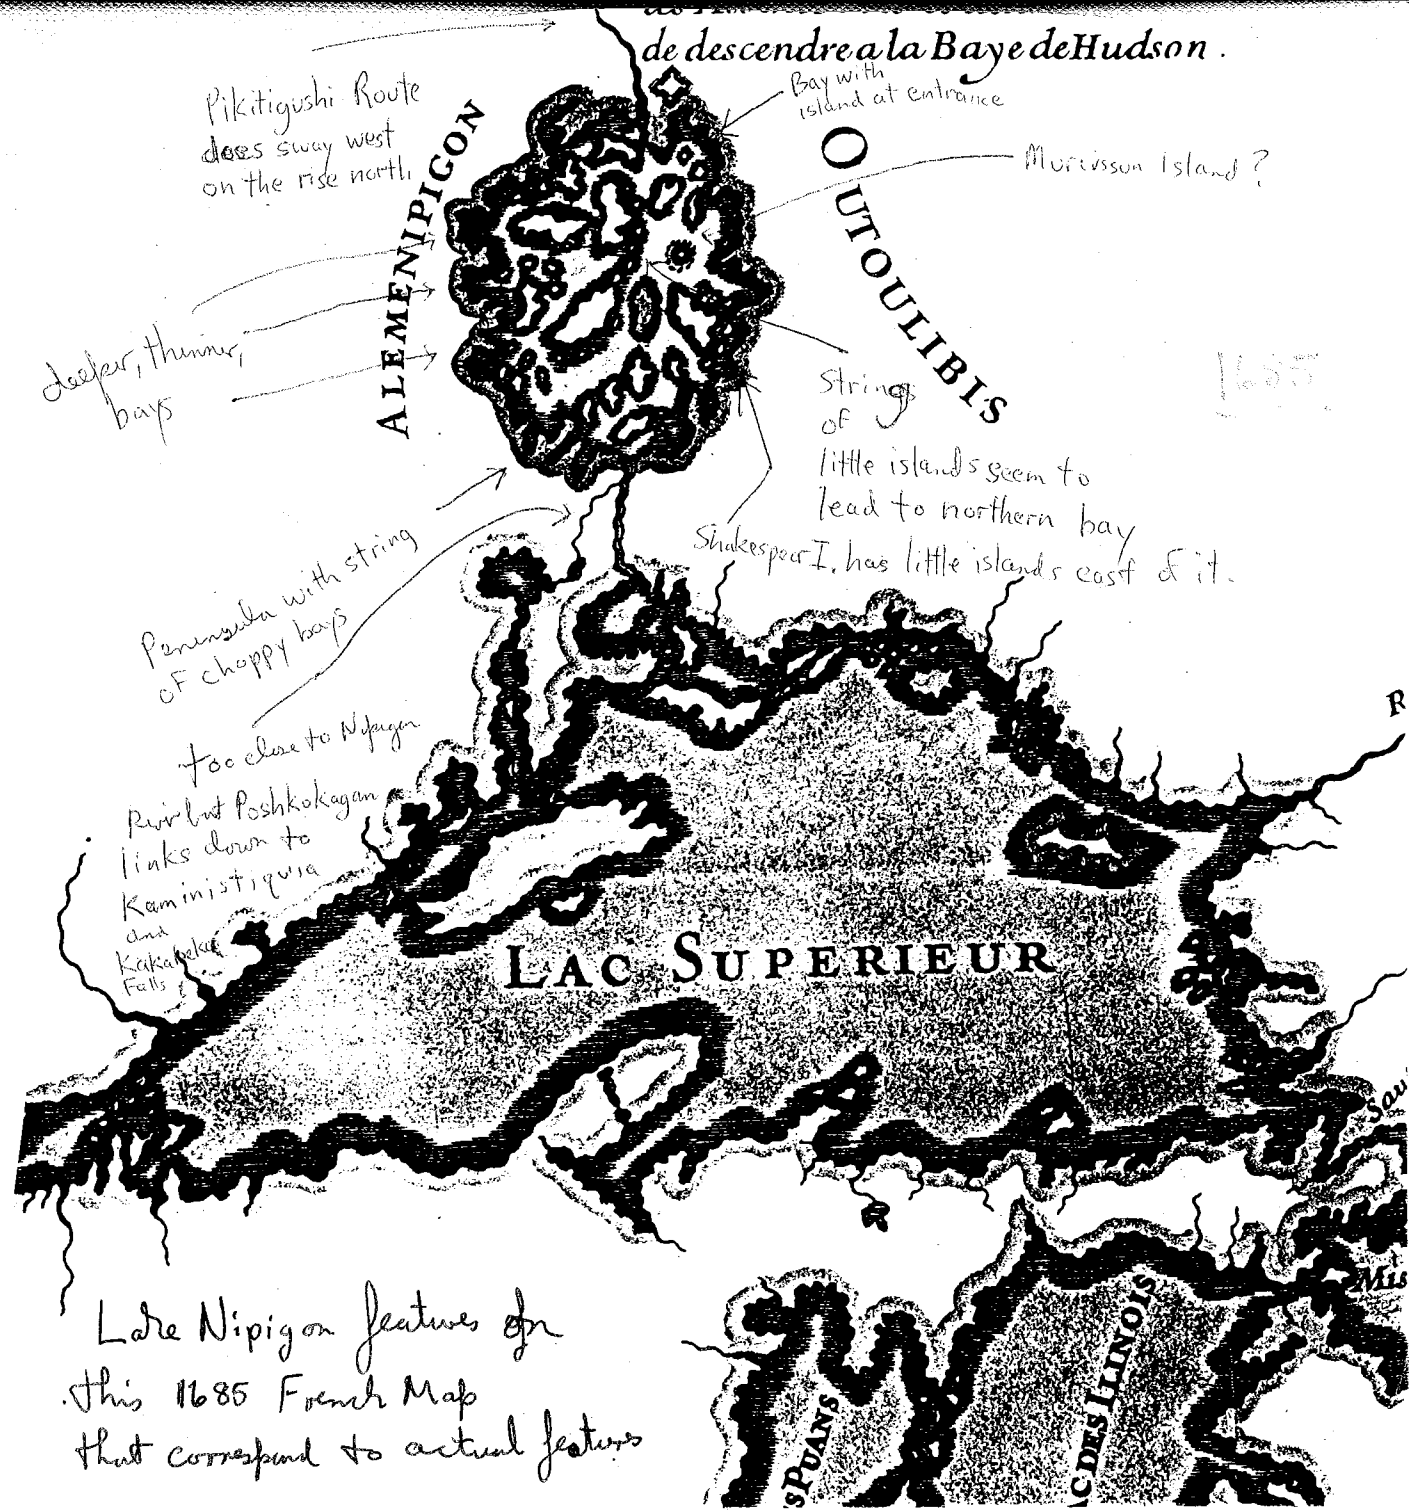 de descendre a la Baye de Hudson .
Pikitigushi Route
does sway west
on the rise north
Bay with
island at entrance
ALEMENIPIGON
OUTOULIBIS
Murcisson Island ?
deeper, thinner,
bays
1685
Strings
of
little islands seem to
lead to northern bay
Shakespear I. has little islands east of it.
Peninsula with string
of choppy bays
too close to Nipigon
River but Poshkokagan
links down to
Kaministiquia
and
Kakabeka
Falls
R
LAC SUPERIEUR
Sau
Mis
Lake Nipigon features on
this 1685 French Map
that correspond to actual features
S PUANS
AC DES ILINOIS